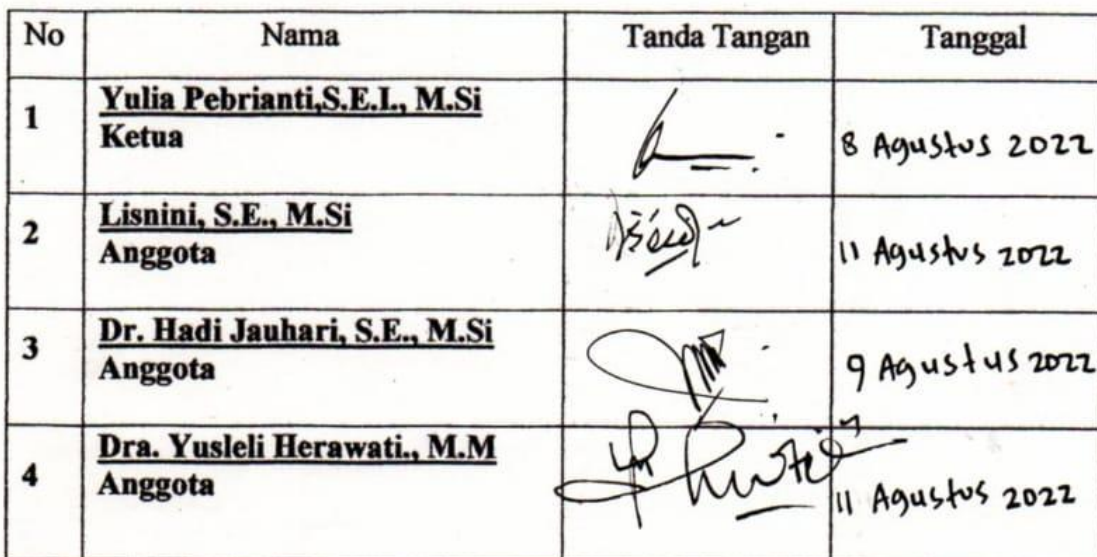 No Nama Tanda Tangan Tanggal
1 Yulia Pebrianti,S.E.I., M.Si
Ketua
8 Agustus 2022
2 Lisnini, S.E., M.Si
Anggota
11 Agustus 2022
3 Dr. Hadi Jauhari, S.E., M.Si
Anggota
9 Agustus 2022
4 Dra. Yusleli Herawati., M.M
Anggota
11 Agustus 2022